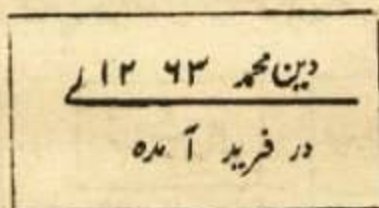 دین محمد ۶۳ ۱۲ ے
در فرید آمده